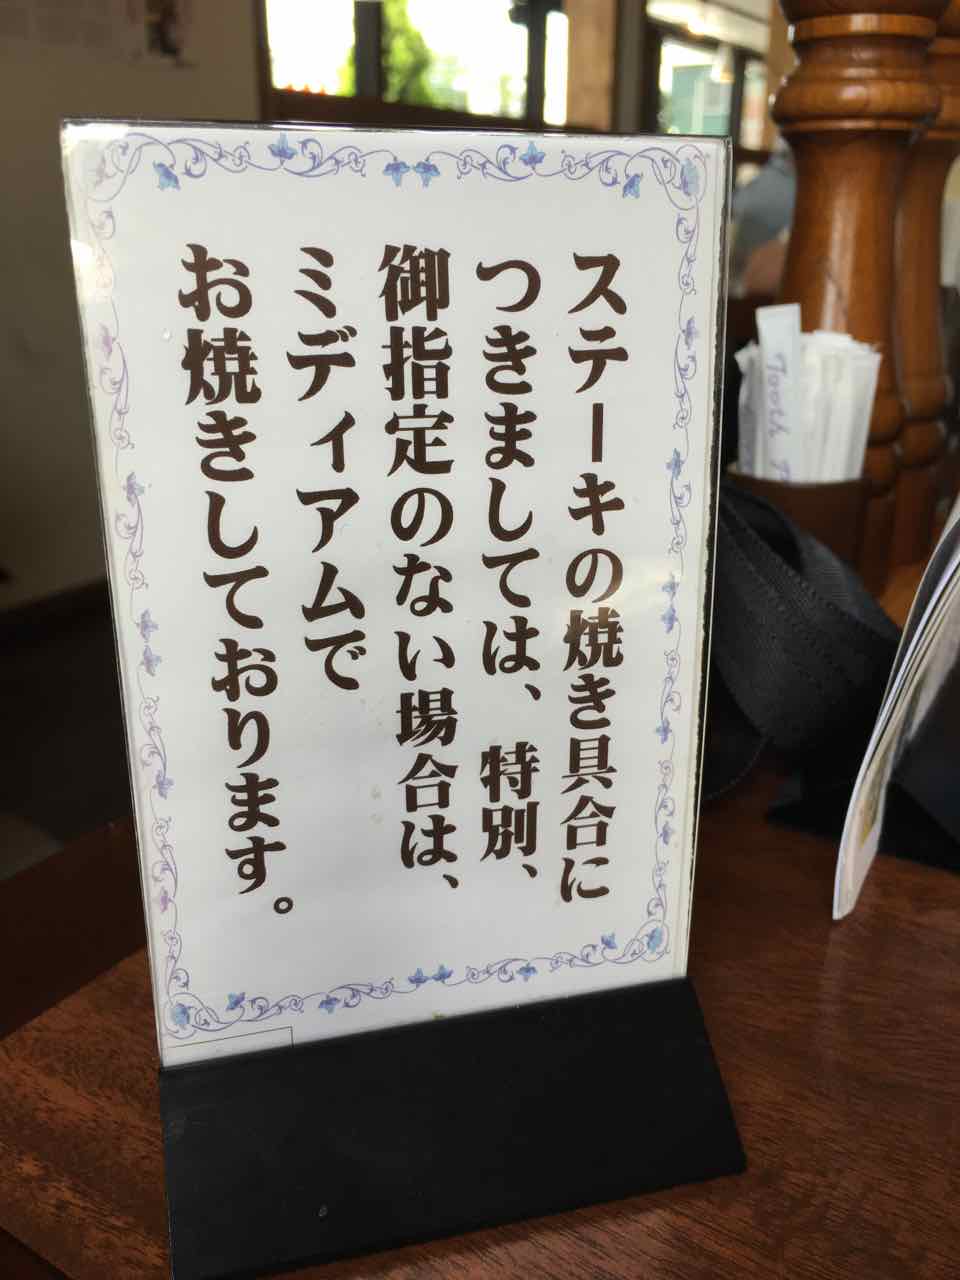 ステーキの焼き具合に
つきましては、特別、
御指定のない場合は、
ミディアムで
お焼きしております。
Tooth